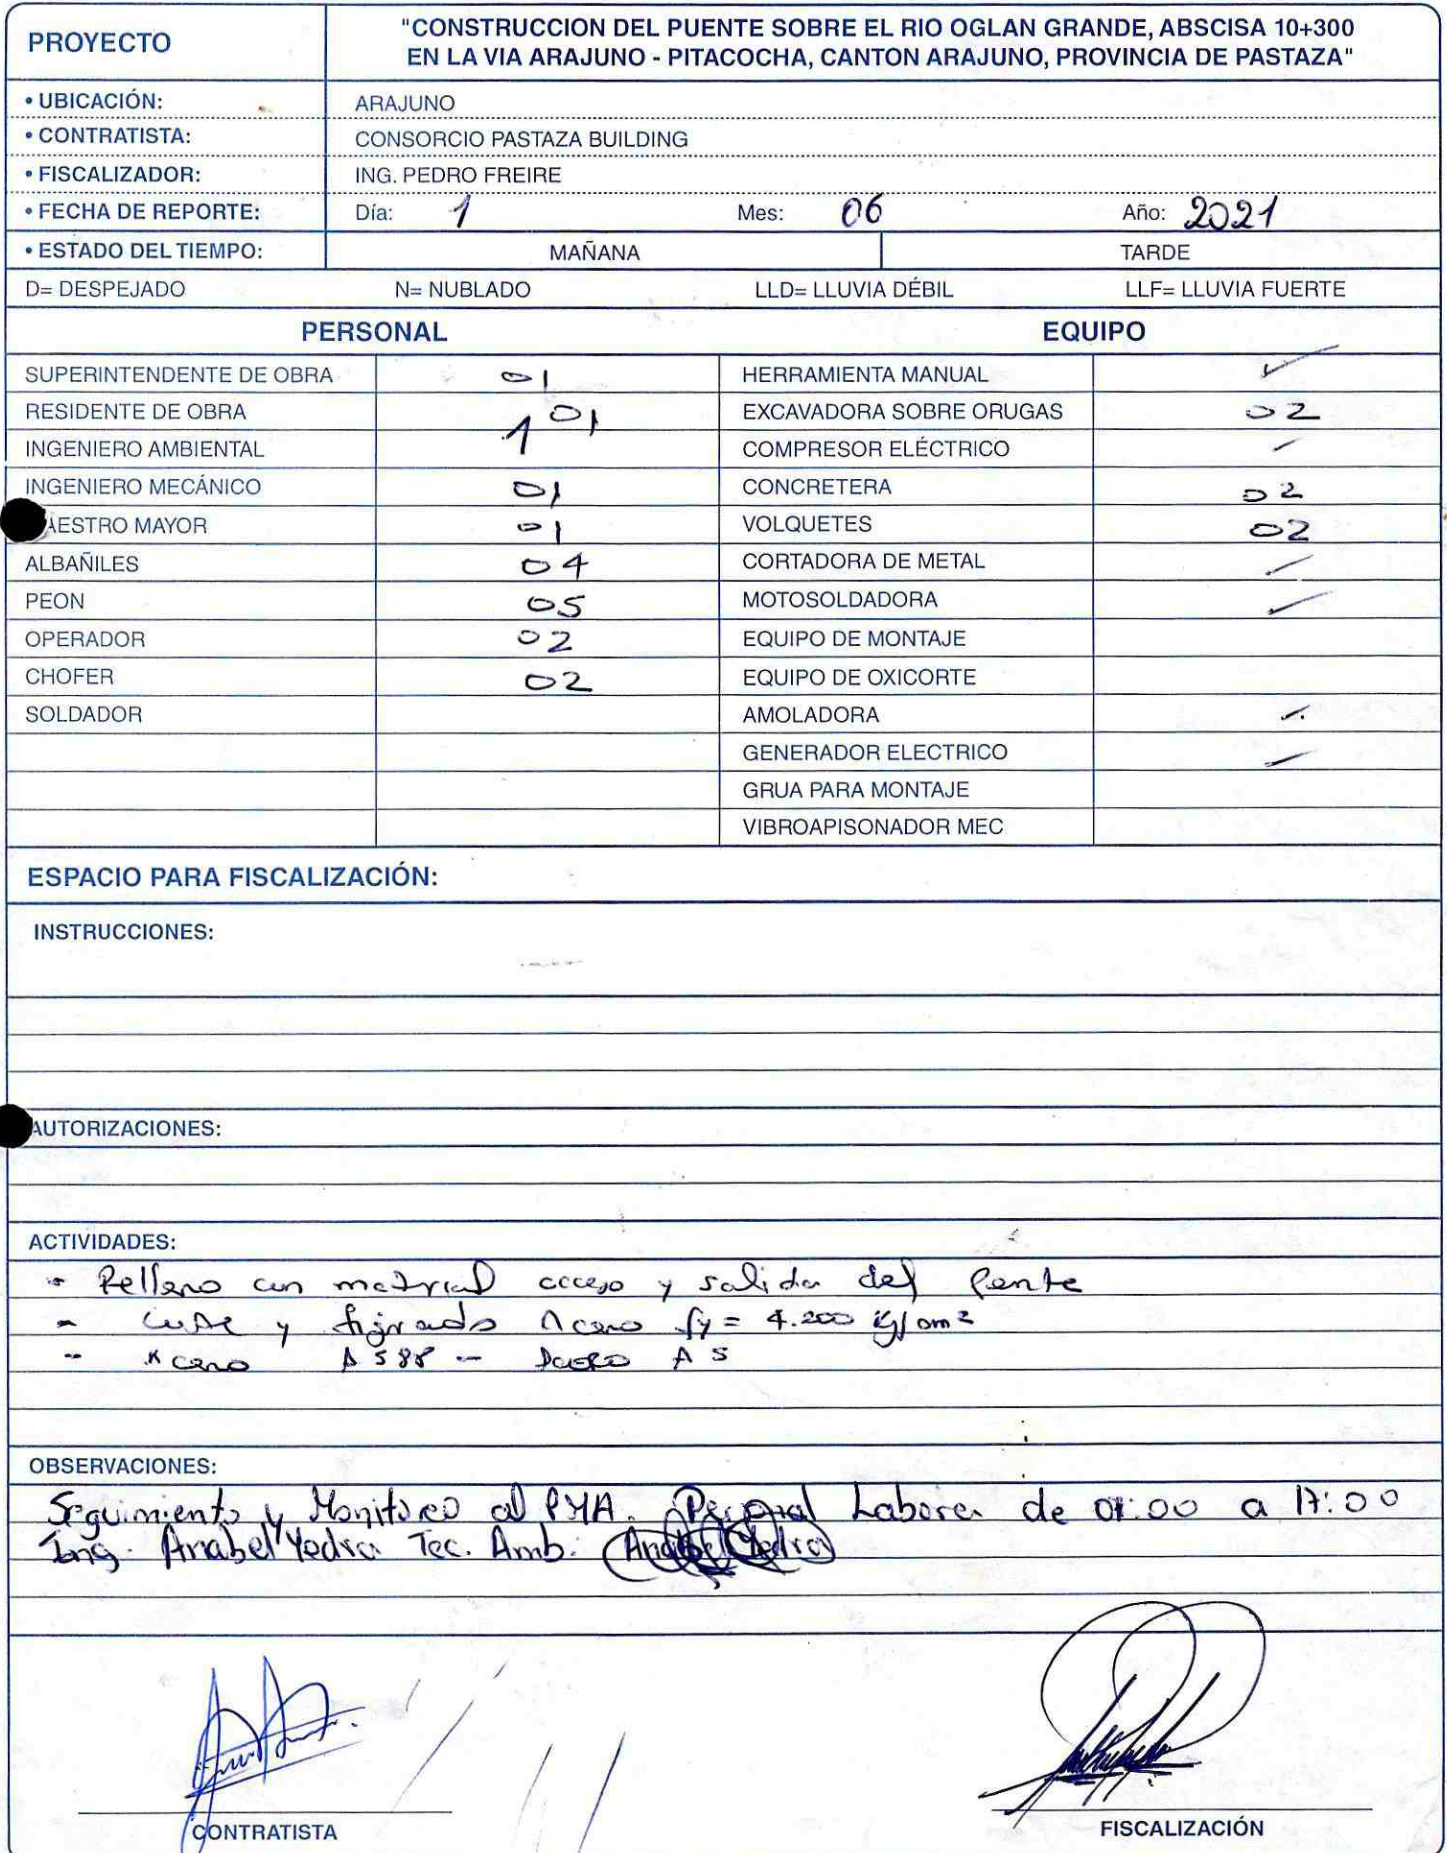 PROYECTO
"CONSTRUCCION DEL PUENTE SOBRE EL RIO OGLAN GRANDE, ABSCISA 10+300
EN LA VIA ARAJUNO - PITACOCHA, CANTON ARAJUNO, PROVINCIA DE PASTAZA"
• UBICACIÓN: ARAJUNO
• CONTRATISTA: CONSORCIO PASTAZA BUILDING
• FISCALIZADOR: ING. PEDRO FREIRE
• FECHA DE REPORTE: Día: 1 Mes: 06 Año: 2021
• ESTADO DEL TIEMPO: MAÑANA TARDE
D= DESPEJADO N= NUBLADO LLD= LLUVIA DÉBIL LLF= LLUVIA FUERTE
PERSONAL EQUIPO
SUPERINTENDENTE DE OBRA 01 HERRAMIENTA MANUAL ✓
RESIDENTE DE OBRA 01 EXCAVADORA SOBRE ORUGAS 02
INGENIERO AMBIENTAL 1 COMPRESOR ELÉCTRICO ✓
INGENIERO MECÁNICO 01 CONCRETERA 02
AESTRO MAYOR 01 VOLQUETES 02
ALBAÑILES 04 CORTADORA DE METAL ✓
PEON 05 MOTOSOLDADORA ✓
OPERADOR 02 EQUIPO DE MONTAJE
CHOFER 02 EQUIPO DE OXICORTE
SOLDADOR AMOLADORA ✓
GENERADOR ELECTRICO ✓
GRUA PARA MONTAJE
VIBROAPISONADOR MEC
ESPACIO PARA FISCALIZACIÓN:
INSTRUCCIONES:
AUTORIZACIONES:
ACTIVIDADES:
- Relleno con material acceso y salida del Pente
- Corte y figurado Acero fy = 4.200 Kg/cm²
- Acero A 588 -
OBSERVACIONES:
Seguimiento y Monitoreo al PMA. Personal Labora de 07:00 a 17:00
Ing. Anabel Yedra Tec. Amb. Anabel Yedra
CONTRATISTA FISCALIZACIÓN